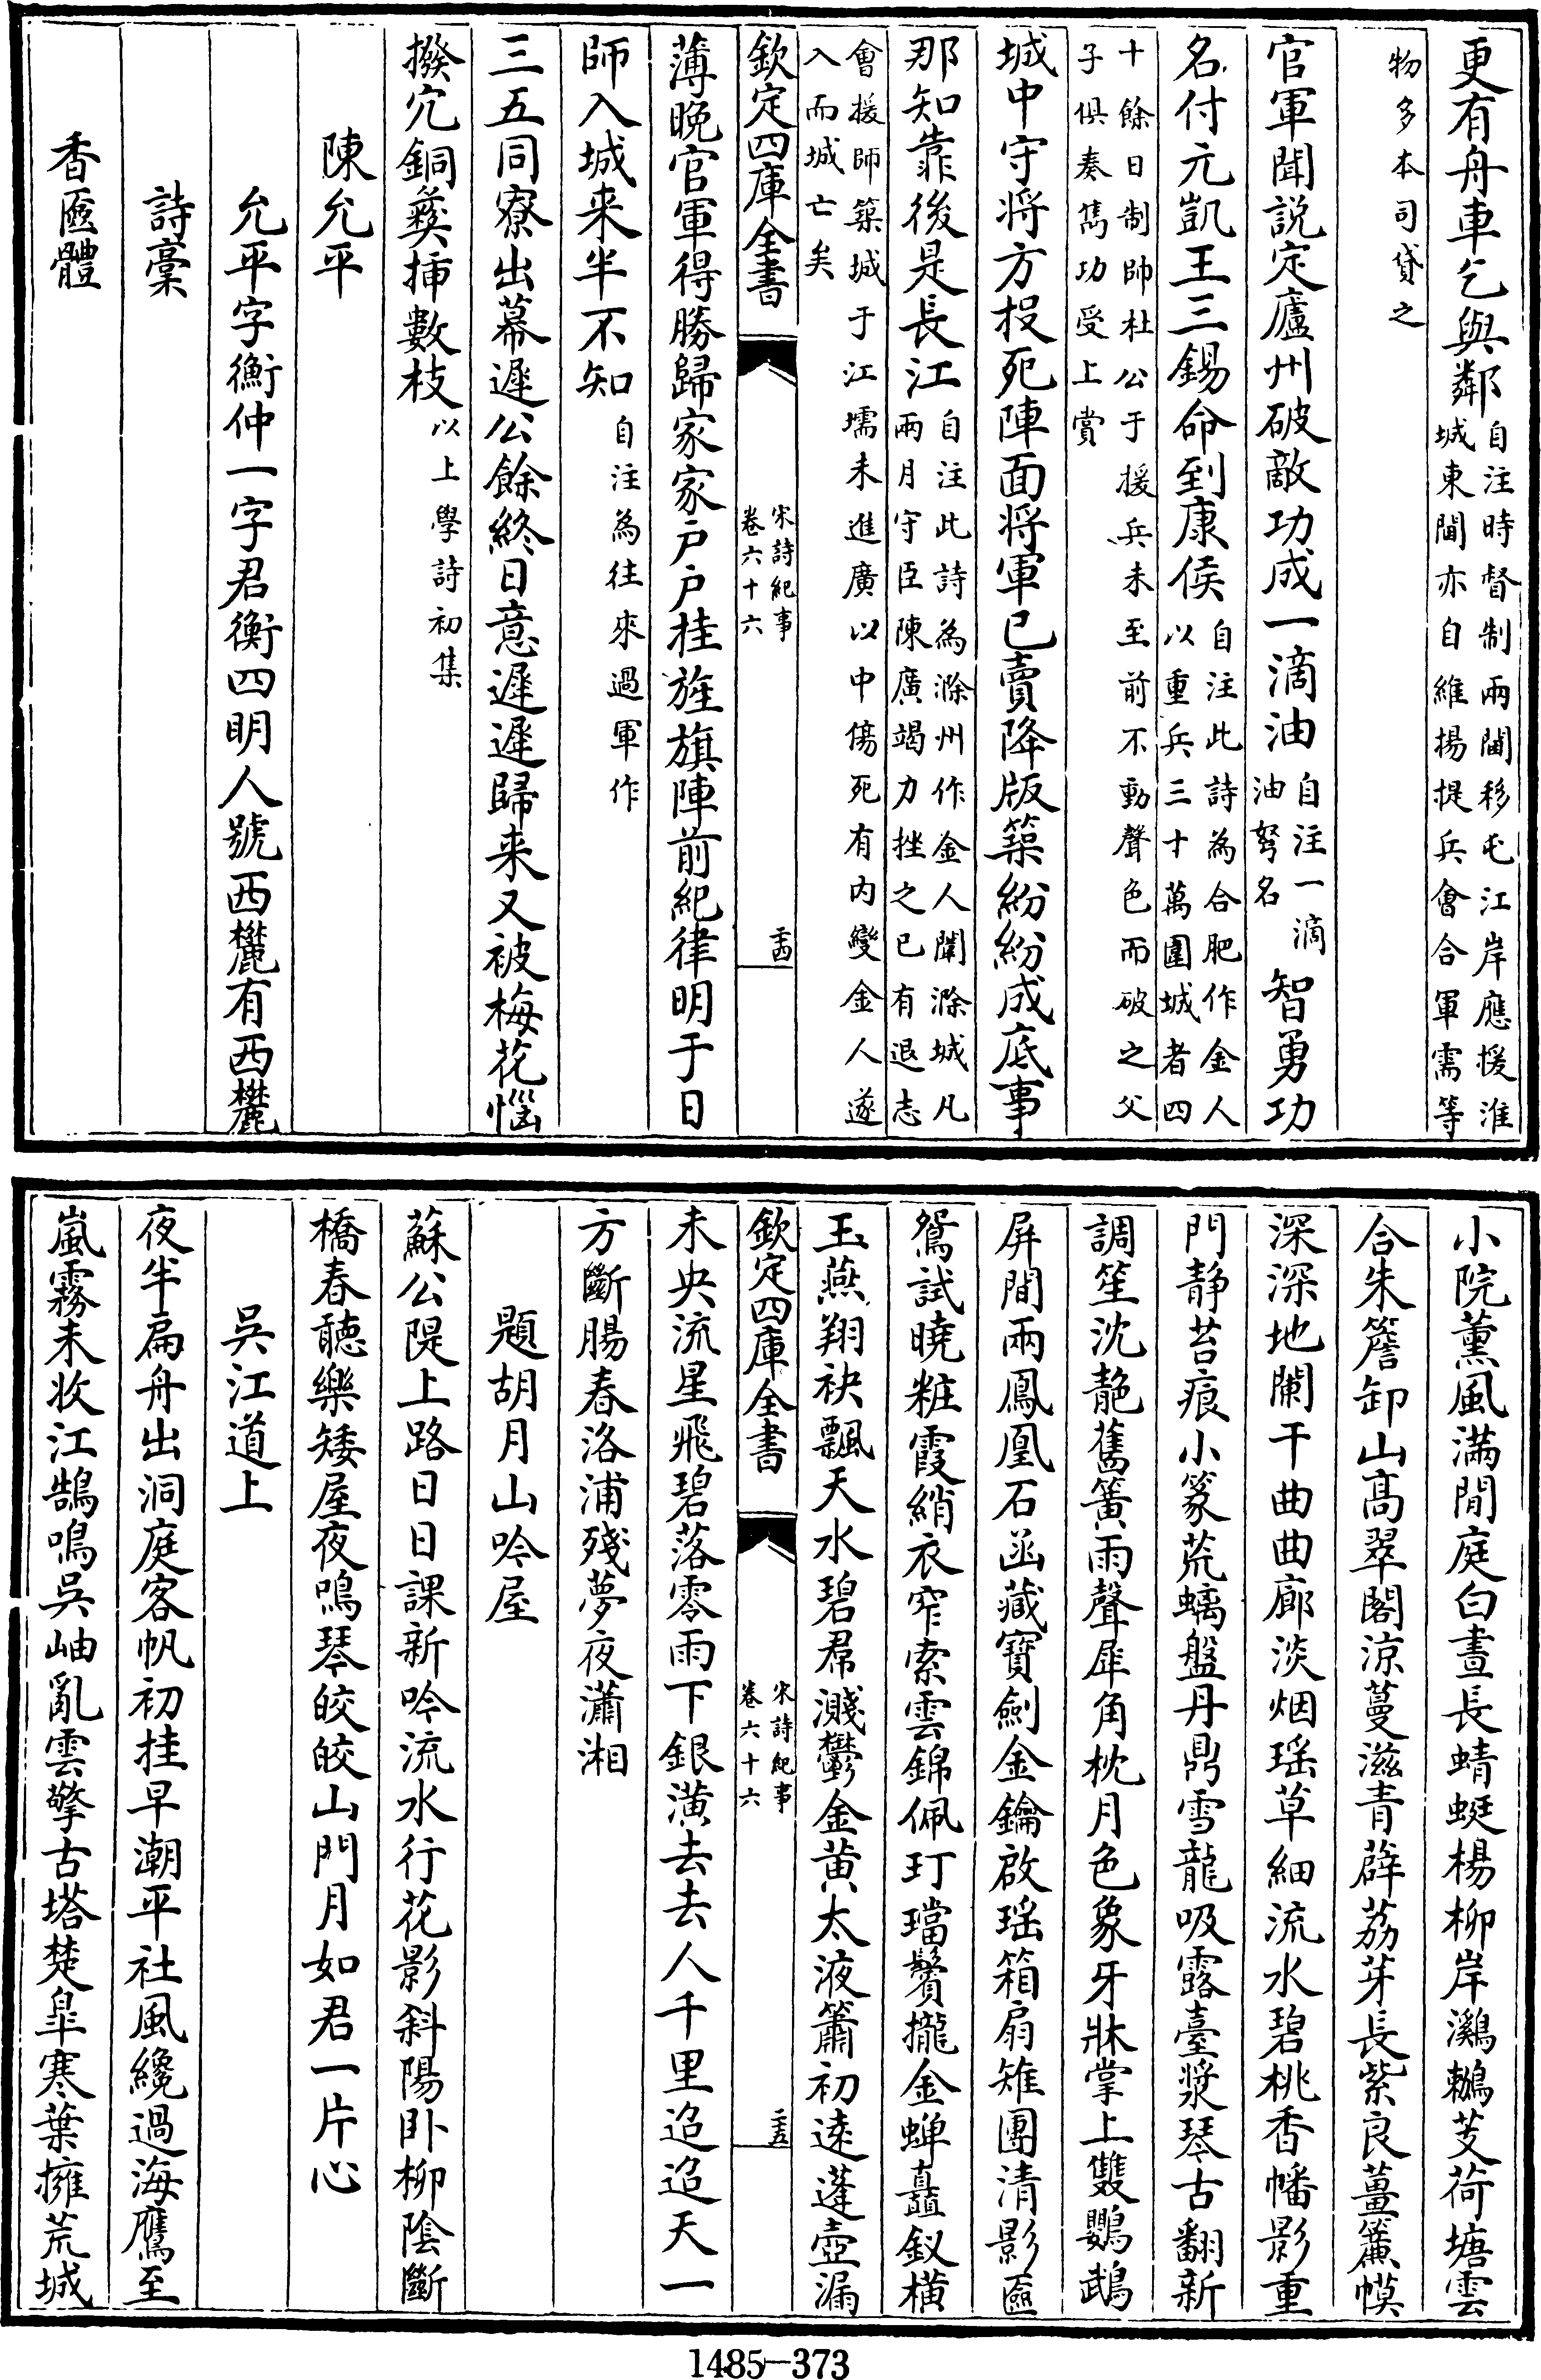 更有舟車乞與鄰自注時督制兩閫移屯江岸應援淮
城東閫亦自維揚提兵會合軍需等
物多本司貸之
官軍聞説定廬州破敵功成一滴油自注一滴
油弩名智勇功
名付元凱王三錫命到康侯自注此詩為合肥作金人
以重兵三十萬圍城者四
十餘日制帥杜公于援兵未至前不動聲色而破之父
子俱奏雋功受上賞
城中守將方投死陣面將軍已賣降版築紛紛成底事
那知靠後是長江自注此詩為滁州作金人闖滁城凡
兩月守臣陳廣竭力挫之已有退志
會援師築城于江壖未進廣以中傷死有内變金人遂
入而城亡矣
欽定四庫全書
宋詩紀事
卷六十六
二十四
薄晚官軍得勝歸家家户户桂旌旗陣前紀律明于日
師入城来半不知自注為往來過軍作
三五同寮出幕遲公餘終日意遲遲歸来又被梅花惱
撥冗銅彝揷數枝以上學詩初集
陳允平
允平字衡仲一字君衡四明人號西麓有西麓
詩稾
香匳體
小院薰風満閒庭白晝長蜻蜓楊柳岸鸂鶒芰荷塘雲
合朱簷卸山髙翠閣涼蔓滋青薜荔芽長紫良薑簾幙
深深地闌干曲曲廊淡烟瑶草細流水碧桃香幡影重
門静苔痕小篆荒螭盤丹鼎雪龍吸露臺漿琴古翻新
調笙沈靘舊簧雨聲犀角枕月色象牙牀掌上雙鸚鵡
屏間兩鳳凰石函藏寳劍金鑰啟瑶箱扇雉團清影匳
鴛試曉粧霞綃衣窄索雲錦佩玎璫鬢攏金蟬矗釵横
玉燕翔袂飄天水碧帬濺鬱金黄太液簫初遠蓬壺漏
欽定四庫全書
宋詩紀事
卷六十六
二十五
未央流星飛碧落零雨下銀潢去去人千里迢迢天一
方斷腸春洛浦殘夢夜瀟湘
題胡月山吟屋
蘇公隄上路日日課新吟流水行花影斜陽卧柳陰斷
橋春聽樂矮屋夜鳴琴皎皎山門月如君一片心
吳江道上
夜半扁舟出洞庭客帆初挂早潮平社風纔過海鷹至
嵐霧未收江鵠鳴吳岫亂雲擎古塔楚皐寒葉擁荒城
1485-373